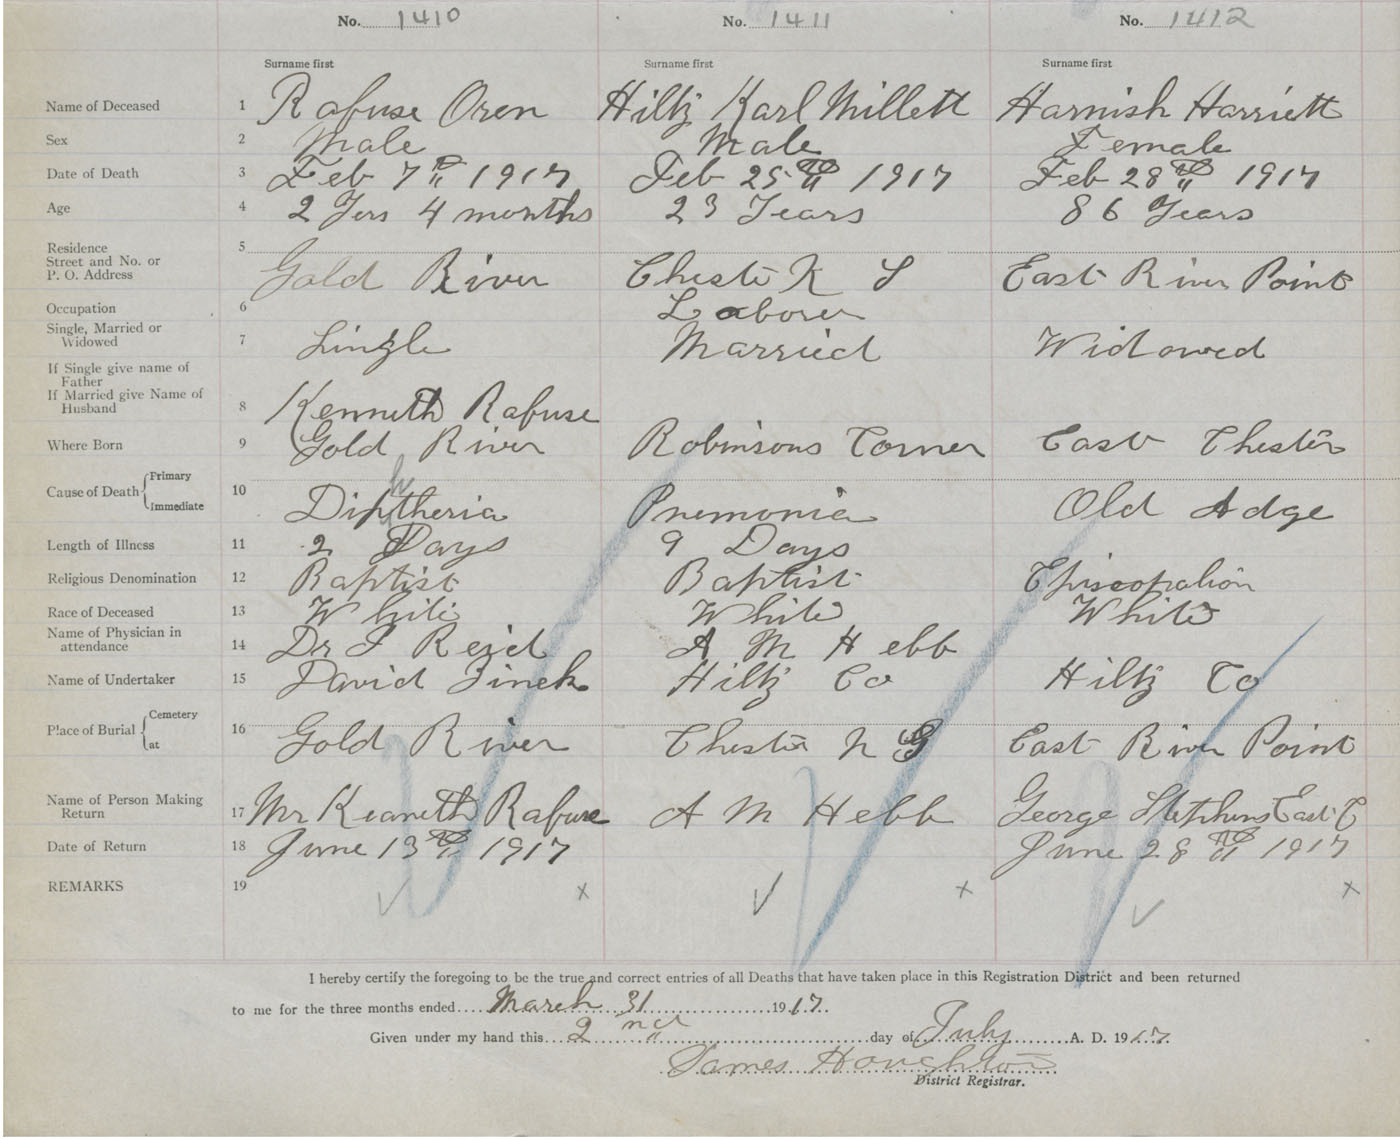 No. 1410 No. 1411 No. 1412
Surname first Surname first Surname first
Name of Deceased 1 Rafuse Oren Hiltz Karl Millett Harnish Harriett
Sex 2 Male Male Female
Date of Death 3 Feb 7th 1917 Feb 25th 1917 Feb 28th 1917
Age 4 2 Yers 4 months 23 Years 86 Years
Residence 5
Street and No. or
P. O. Address Gold River Chester N S East River Point
Occupation 6 Laborer
Single, Married or
Widowed 7 Single Married Widowed
If Single give name of
Father
If Married give Name of
Husband 8 Kenneth Rafuse
Where Born 9 Gold River Robinsons Corner East Chester
Cause of Death { Primary
Immediate 10 Diphtheria Pnemonia Old Adge
Length of Illness 11 2 Days 9 Days
Religious Denomination 12 Baptist Baptist Episcopalion
Race of Deceased 13 White White White
Name of Physician in
attendance 14 Dr J Reid A M Hebb
Name of Undertaker 15 David Zinck Hiltz Co Hiltz Co
Place of Burial { Cemetery
at 16 Gold River Chester N S East River Point
Name of Person Making
Return 17 Mr Kenneth Rafuse A M Hebb George Stephens East C
Date of Return 18 June 13th 1917 June 28th 1917
REMARKS 19
I hereby certify the foregoing to be the true and correct entries of all Deaths that have taken place in this Registration District and been returned
to me for the three months ended March 31 1917.
Given under my hand this 2nd day of July A. D. 1917.
James Houghton
District Registrar.